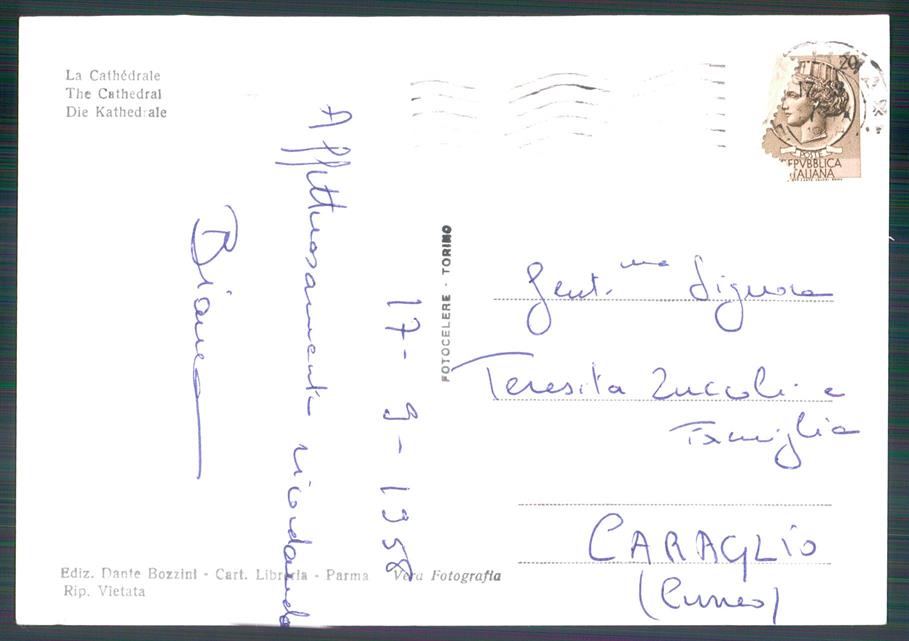 La Cathédrale
The Cathedral
Die Kathedrale
Affettuosamente ricordando
Bianca
17-9-1958
Ediz. Dante Bozzini - Cart. Libreria - Parma
Vera Fotografia
Rip. Vietata
FOTOCELERE - TORINO
20
POSTE
REPVBBLICA
ITALIANA
Gent.ma Signora
Teresita Zuccoli e
Famiglia
CARAGLIO
(Cuneo)